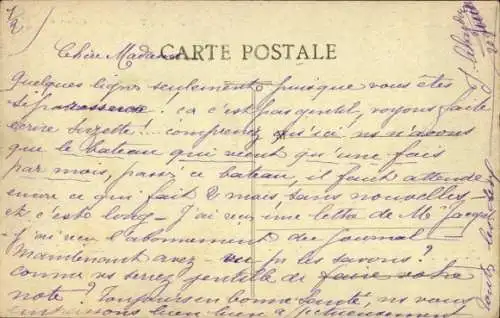 1/2
Chère Madame
CARTE POSTALE
Quelques lignes seulement puisque vous êtes
si paresseuse. ça c'est pas gentil, voyons faite
écrire Suzette! comprenez qu'ici ns n'avons
que le bateau qui vient qu'une fois
par mois, passé ce bateau, il faut attendre
encore ce qui fait 2 mois sans nouvelles
et c'est long - J'ai reçu une lettre de Mr Jacques
- j'ai reçu l'abonnement du journal
Maintenant avez-vous pu les savons?
comme vs seriez gentille de faire votre
note? Toujours en bonne santé, ns vous
embrassons bien bien affectueusement